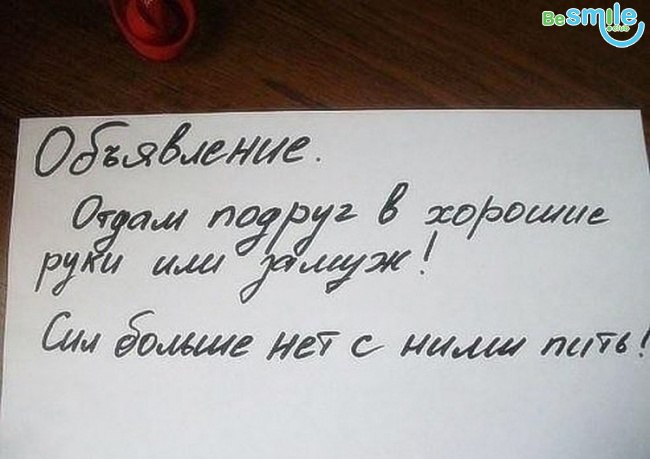 Be smile
.club
Объявление.
Отдам подруг в хорошие
руки или замуж!
Сил больше нет с ними пить!